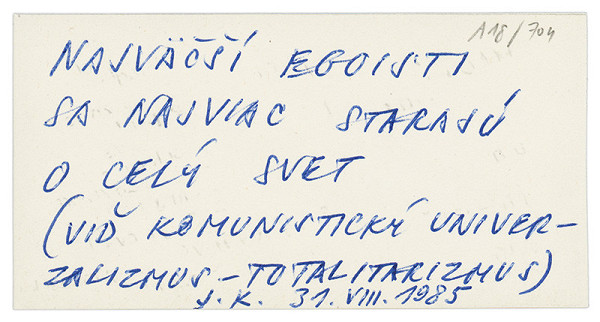 A18/704
NAJVÄČŠÍ EGOISTI
SA NAJVIAC STARAJÚ
O CELÝ SVET
(VIĎ KOMUNISTICKÝ UNIVER-
ZALIZMUS-TOTALITARIZMUS)
J.K. 31.VIII.1985